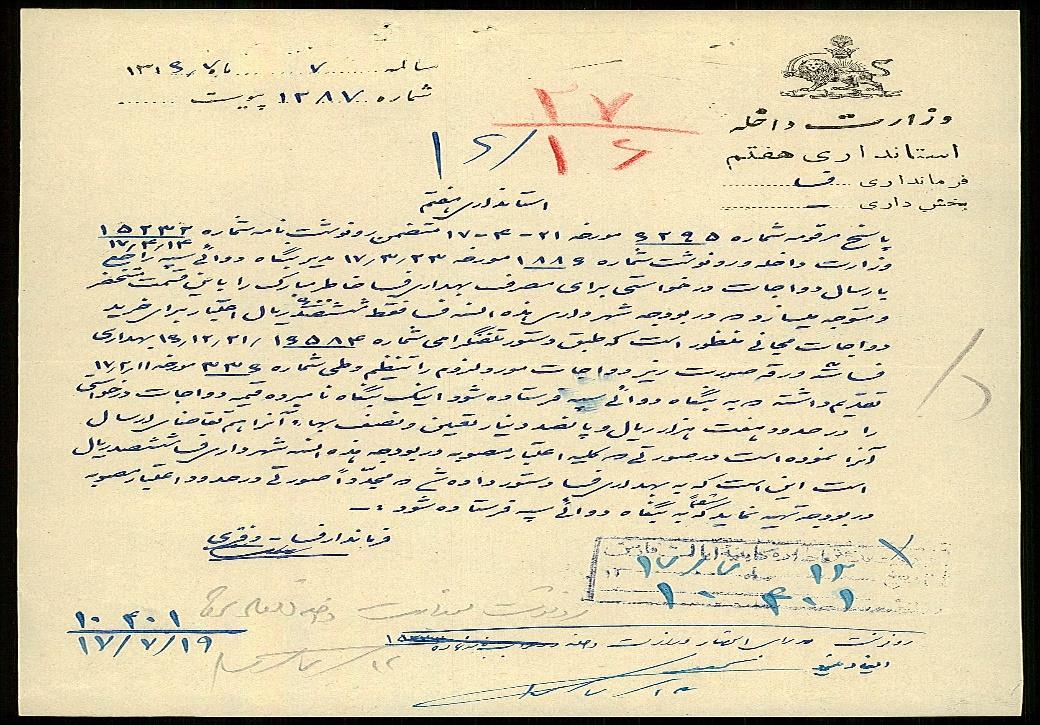 وزارت داخله
استانداری هفتم
فرمانداری فسا
بخش داری
ماه ۷
شماره ۱۲۸۷ پیوست
۲۷
۱۶
استانداری هفتم
پاسخ مرقومه شماره ۶۲۹۵ مورخه ۲۱-۴-۱۷ متضمن رونوشت نامه شماره ۱۵۲۳۲
۱۷/۴/۱۴
وزارت داخله و رونوشت شماره ۱۸۸۶ مورخه ۱۷/۳/۲۳ مدیر بنگاه دوائی سپه راجع
بارسال دواجات درخواستی برای مصرف بهداری فسا خاطر مبارک را باین قسمت
و متوجه میسازد که در بودجه شهرداری هذه السنه فسا فقط ششصد ریال اعتبار برای خرید
دواجات مجانی منظور است که طبق دستور تلگرافی شماره ۱۶۵۸۴ ۱۶/۱۲/۲۱ بهداری
فسا ورقه صورت ریز دواجات مورد لزوم را تنظیم و طی شماره ۳۳۶ مورخه ۱۷/۲/۱۱
تقدیم داشته که به بنگاه دوائی سپه فرستاده شود اینک بنگاه نامبرده قیمت دواجات درخواستی
را در حدود هفت هزار ریال و پانصد دینار تعیین و نصف بهاء آنرا هم تقاضای ارسال
آنرا نموده است در صورتی که کلیه اعتبار مصوبه در بودجه هذه السنه شهرداری فسا ششصد ریال
است این است که به بهداری فسا دستور داده شد که مجدداً صورتی در حدود اعتبار مصوبه
در بودجه تهیه نماید که به بنگاه دوائی سپه فرستاده شود
فرماندار فسا
۱۰۴۰۱
۱۷/۷/۱۹
رونوشت برای استحضار وزارت داخله